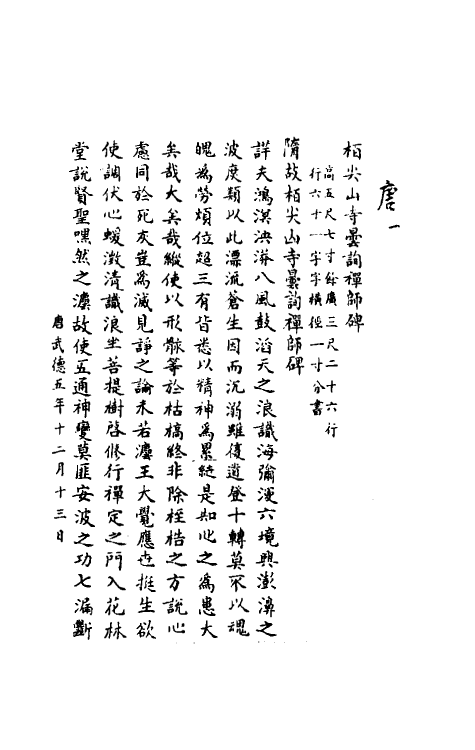 唐一
栢尖山寺曇詢禪師碑
高五尺七寸餘廣三尺二十六行
行六十一字字橫徑一寸分書
隋故栢尖山寺曇詢禪師碑
詳夫鴻溟泱漭八風鼓滔天之浪識海彌漫六境興澎濞之
波庻類以此漂流蒼生因而沉溺雖復道登十轉莫不以魂
魄爲勞煩位超三有皆悉以精神爲累紲是知心之爲患大
矣哉大矣哉縱使以形骸等於枯槁終非除桎梏之方說心
慮同於死灰豈爲滅見諍之論未若灋王大覺應世挺生欲
使調伏心蝯澂清識浪坐菩提樹啓修行禪定之門入花林
堂說賢聖嘿然之灋故使五通神變莫匪安波之功七漏斷
唐武德五年十二月十三日